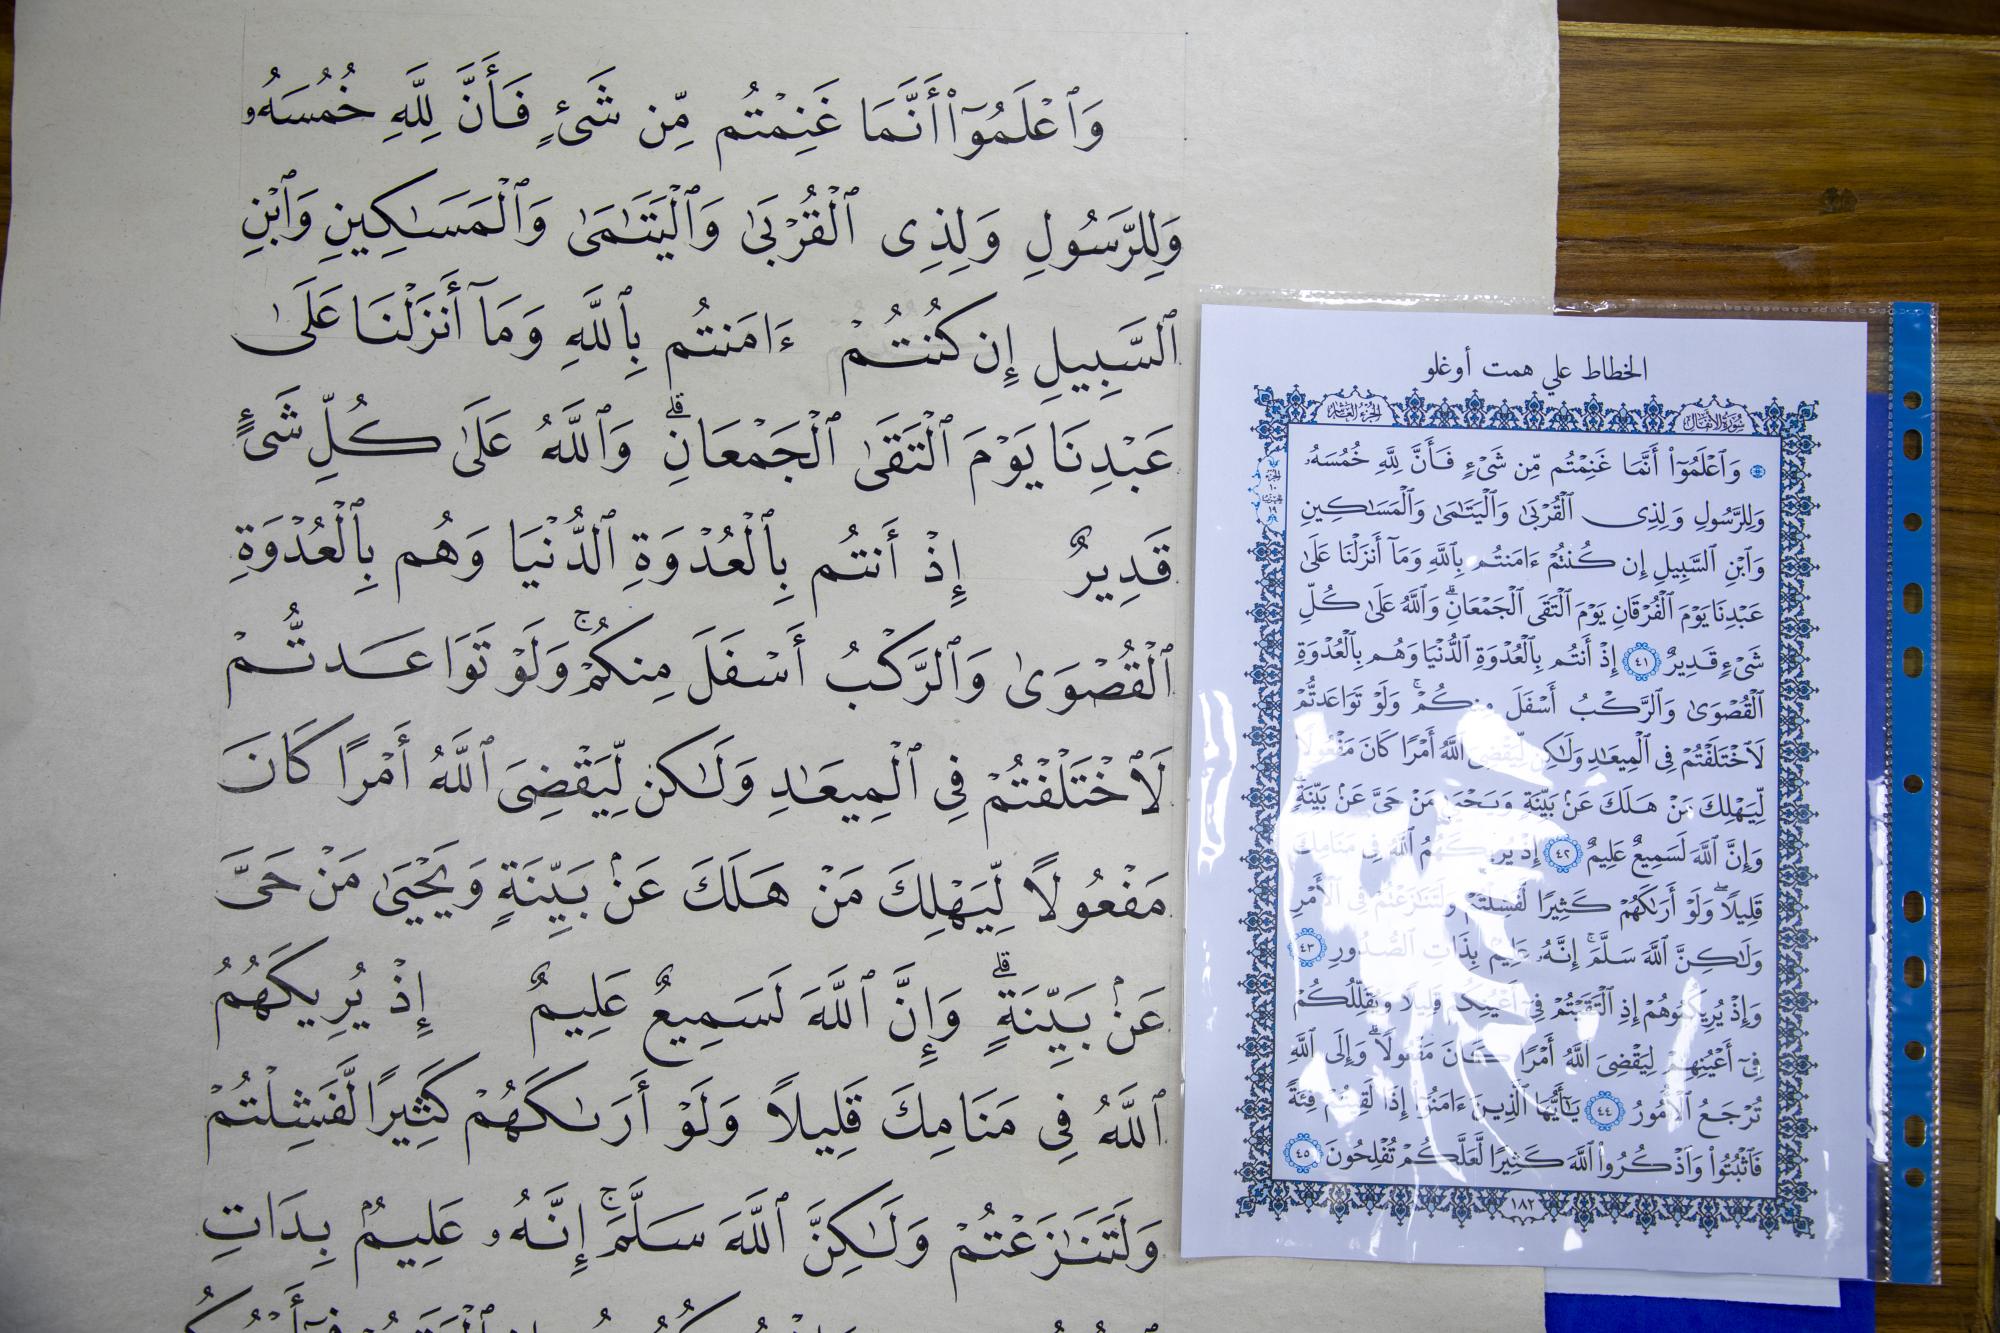 وَٱعۡلَمُوٓا۟ أَنَّمَا غَنِمۡتُم مِّن شَىۡءٍ فَأَنَّ لِلَّهِ خُمُسَهُۥ
وَلِلرَّسُولِ وَلِذِى ٱلۡقُرۡبَىٰ وَٱلۡيَتَٰمَىٰ وَٱلۡمَسَٰكِينِ وَٱبۡنِ
ٱلسَّبِيلِ إِن كُنتُمۡ ءَامَنتُم بِٱللَّهِ وَمَآ أَنزَلۡنَا عَلَىٰ
عَبۡدِنَا يَوۡمَ ٱلۡتَقَى ٱلۡجَمۡعَانِۗ وَٱللَّهُ عَلَىٰ كُلِّ شَىۡءٍ
قَدِيرٌ إِذۡ أَنتُم بِٱلۡعُدۡوَةِ ٱلدُّنۡيَا وَهُم بِٱلۡعُدۡوَةِ
ٱلۡقُصۡوَىٰ وَٱلرَّكۡبُ أَسۡفَلَ مِنكُمۡۚ وَلَوۡ تَوَاعَدتُّمۡ
لَٱخۡتَلَفۡتُمۡ فِى ٱلۡمِيعَٰدِ وَلَٰكِن لِّيَقۡضِىَ ٱللَّهُ أَمۡرًا كَانَ
مَفۡعُولًا لِّيَهۡلِكَ مَنۡ هَلَكَ عَنۢ بَيِّنَةٍ وَيَحۡيَىٰ مَنۡ حَىَّ
عَنۢ بَيِّنَةٍۗ وَإِنَّ ٱللَّهَ لَسَمِيعٌ عَلِيمٌ إِذۡ يُرِيكَهُمُ
ٱللَّهُ فِى مَنَامِكَ قَلِيلًا وَلَوۡ أَرَىٰكَهُمۡ كَثِيرًا لَّفَشِلۡتُمۡ
وَلَتَنَٰزَعۡتُمۡ وَلَٰكِنَّ ٱللَّهَ سَلَّمَۚ إِنَّهُۥ عَلِيمُۢ بِدَاتِ
الخطاط علي همت أوغلو
سُورَةُ الأَنفَال الجزء العاشر
وَٱعۡلَمُوٓا۟ أَنَّمَا غَنِمۡتُم مِّن شَىۡءٍ فَأَنَّ لِلَّهِ خُمُسَهُۥ
وَلِلرَّسُولِ وَلِذِى ٱلۡقُرۡبَىٰ وَٱلۡيَتَٰمَىٰ وَٱلۡمَسَٰكِينِ
وَٱبۡنِ ٱلسَّبِيلِ إِن كُنتُمۡ ءَامَنتُم بِٱللَّهِ وَمَآ أَنزَلۡنَا عَلَىٰ
عَبۡدِنَا يَوۡمَ ٱلۡفُرۡقَانِ يَوۡمَ ٱلۡتَقَى ٱلۡجَمۡعَانِۗ وَٱللَّهُ عَلَىٰ كُلِّ
شَىۡءٍ قَدِيرٌ ٤١ إِذۡ أَنتُم بِٱلۡعُدۡوَةِ ٱلدُّنۡيَا وَهُم بِٱلۡعُدۡوَةِ
ٱلۡقُصۡوَىٰ وَٱلرَّكۡبُ أَسۡفَلَ مِنكُمۡۚ وَلَوۡ تَوَاعَدتُّمۡ
لَٱخۡتَلَفۡتُمۡ فِى ٱلۡمِيعَٰدِ وَلَٰكِن لِّيَقۡضِىَ ٱللَّهُ أَمۡرًا كَانَ مَفۡعُولًا
لِّيَهۡلِكَ مَنۡ هَلَكَ عَنۢ بَيِّنَةٍ وَيَحۡيَىٰ مَنۡ حَىَّ عَنۢ بَيِّنَةٍۗ
وَإِنَّ ٱللَّهَ لَسَمِيعٌ عَلِيمٌ ٤٢ إِذۡ يُرِيكَهُمُ ٱللَّهُ فِى مَنَامِكَ
قَلِيلًاۖ وَلَوۡ أَرَىٰكَهُمۡ كَثِيرًا لَّفَشِلۡتُمۡ وَلَتَنَٰزَعۡتُمۡ فِى ٱلۡأَمۡرِ
وَلَٰكِنَّ ٱللَّهَ سَلَّمَۚ إِنَّهُۥ عَلِيمُۢ بِذَاتِ ٱلصُّدُورِ ٤٣
وَإِذۡ يُرِيكُمُوهُمۡ إِذِ ٱلۡتَقَيۡتُمۡ فِىٓ أَعۡيُنِكُمۡ قَلِيلًا وَيُقَلِّلُكُمۡ
فِىٓ أَعۡيُنِهِمۡ لِيَقۡضِىَ ٱللَّهُ أَمۡرًا كَانَ مَفۡعُولًاۗ وَإِلَى ٱللَّهِ
تُرۡجَعُ ٱلۡأُمُورُ ٤٤ يَٰٓأَيُّهَا ٱلَّذِينَ ءَامَنُوٓا۟ إِذَا لَقِيتُمۡ فِئَةً
فَٱثۡبُتُوا۟ وَٱذۡكُرُوا۟ ٱللَّهَ كَثِيرًا لَّعَلَّكُمۡ تُفۡلِحُونَ ٤٥
١٨٢